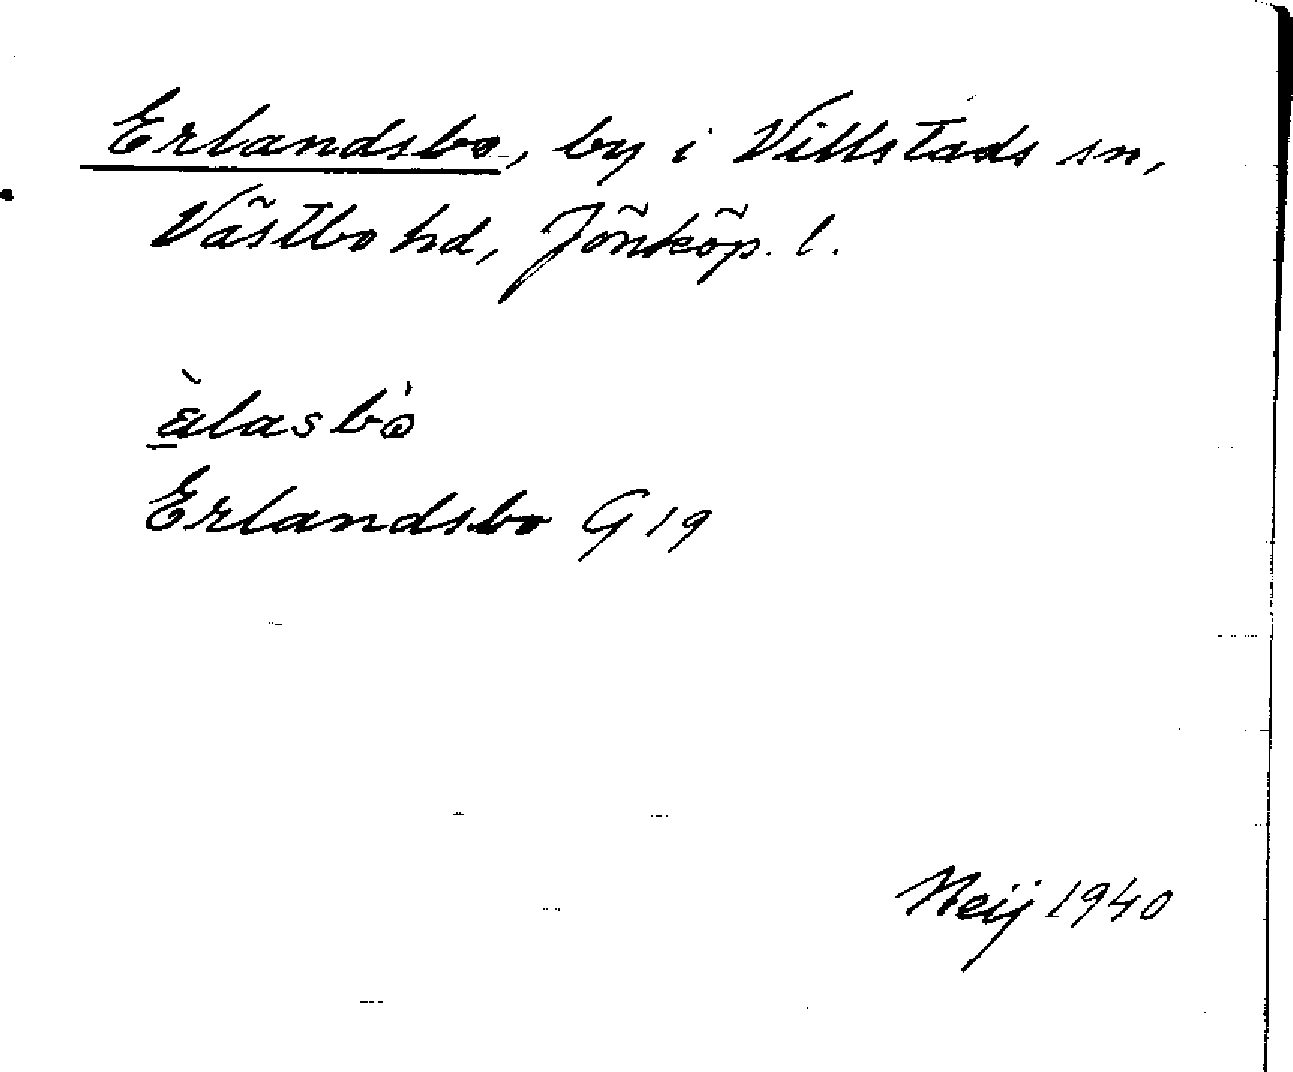 Erlandsbo, by i Villstads sn,
Västbo hd, Jönköp. l.
Erlandsbo G 19
Neij 1940